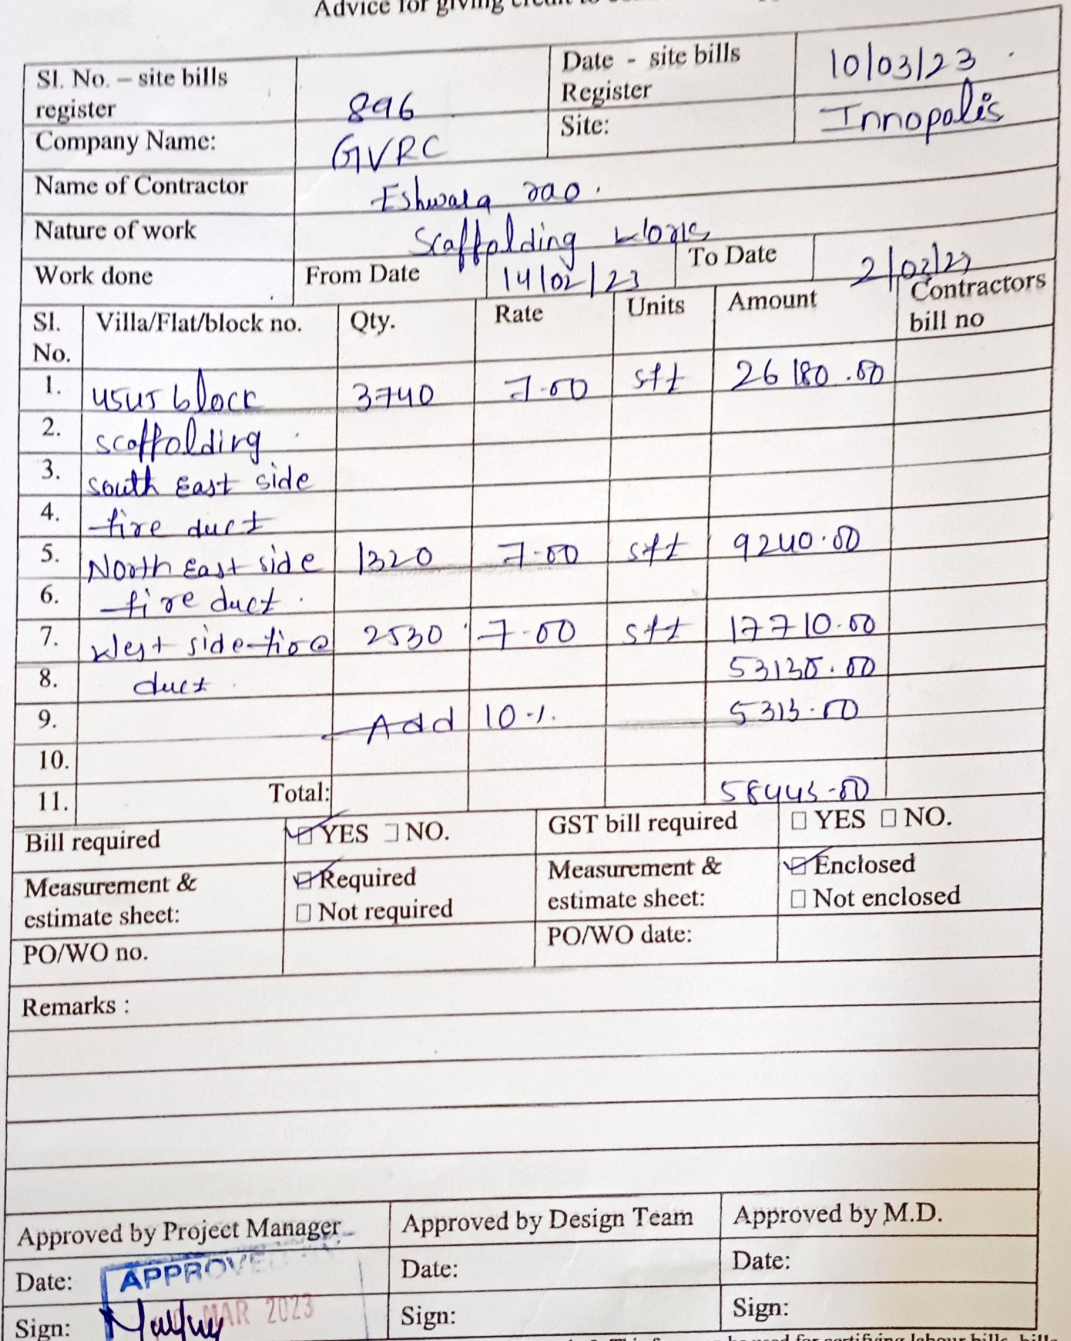 Advice for giving credit to
Sl. No. – site bills register 896 Date - site bills Register 10/03/23
Company Name: GVRC Site: Innopolis
Name of Contractor Eshwara rao.
Nature of work Scaffolding work
Work done From Date 14/02/23 To Date
Sl. No. Villa/Flat/block no. Qty. Rate Units Amount Contractors bill no
1. block 3740 7.00 sft 26180.00
2. scaffolding
3. south East side
4. fire duct
5. North East side 1320 7.00 sft 9240.00
6. fire duct.
7. West side fire 2530 7.00 sft 17710.00
8. duct 53130.00
9. Add 10% 5313.00
10.
11. Total: 58443.00
Bill required YES NO. GST bill required YES NO.
Measurement & estimate sheet: Required Not required Measurement & estimate sheet: Enclosed Not enclosed
PO/WO no. PO/WO date:
Remarks :
Approved by Project Manager Approved by Design Team Approved by M.D.
Date: APPROVED Date: Date:
Sign: MAR 2023 Sign: Sign: